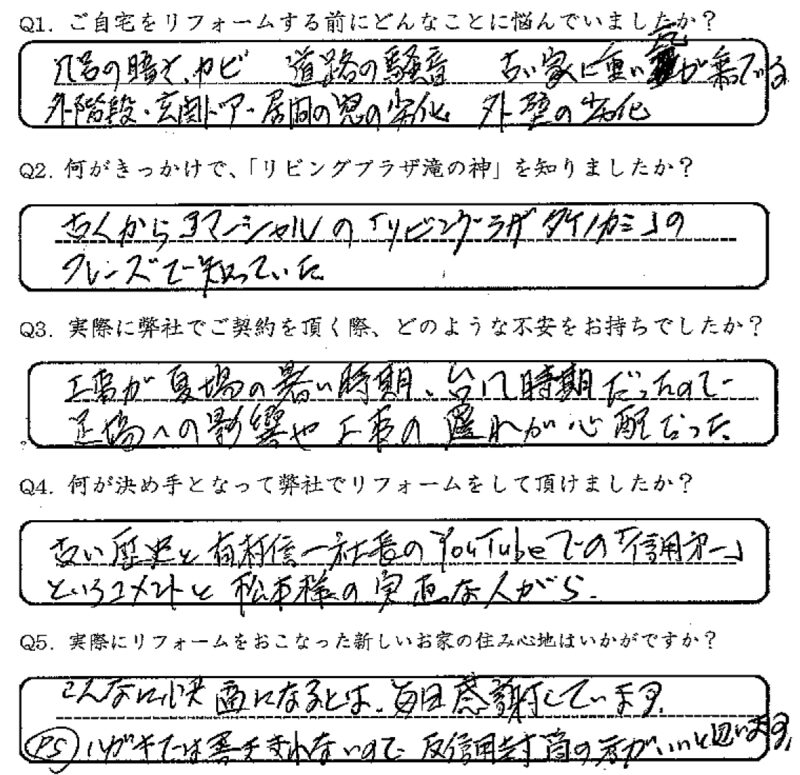 Q1. ご自宅をリフォームする前にどんなことに悩んでいましたか？
風呂の暗さ、カビ 道路の騒音 古い家に重い瓦が乗ってる
外階段・玄関ドア・居間の窓の劣化 外壁の劣化
Q2. 何がきっかけで、「リビングプラザ滝の神」を知りましたか？
古くからコマーシャルの「リビングプラザタキノカミ」の
フレーズで知っていた
Q3. 実際に弊社でご契約を頂く際、どのような不安をお持ちでしたか？
工事が夏場の暑い時期、台風時期だったので
足場への影響や工事の遅れが心配だった。
Q4. 何が決め手となって弊社でリフォームをして頂けましたか？
古い歴史と有村信一社長のYouTubeでの「信用第一」
というコメントと松本様の実直な人がら。
Q5. 実際にリフォームをおこなった新しいお家の住み心地はいかがですか？
こんなに快適になるとは、毎日感謝しています。
PS ハガキでは書ききれないので返信用封筒の方がいいと思います。